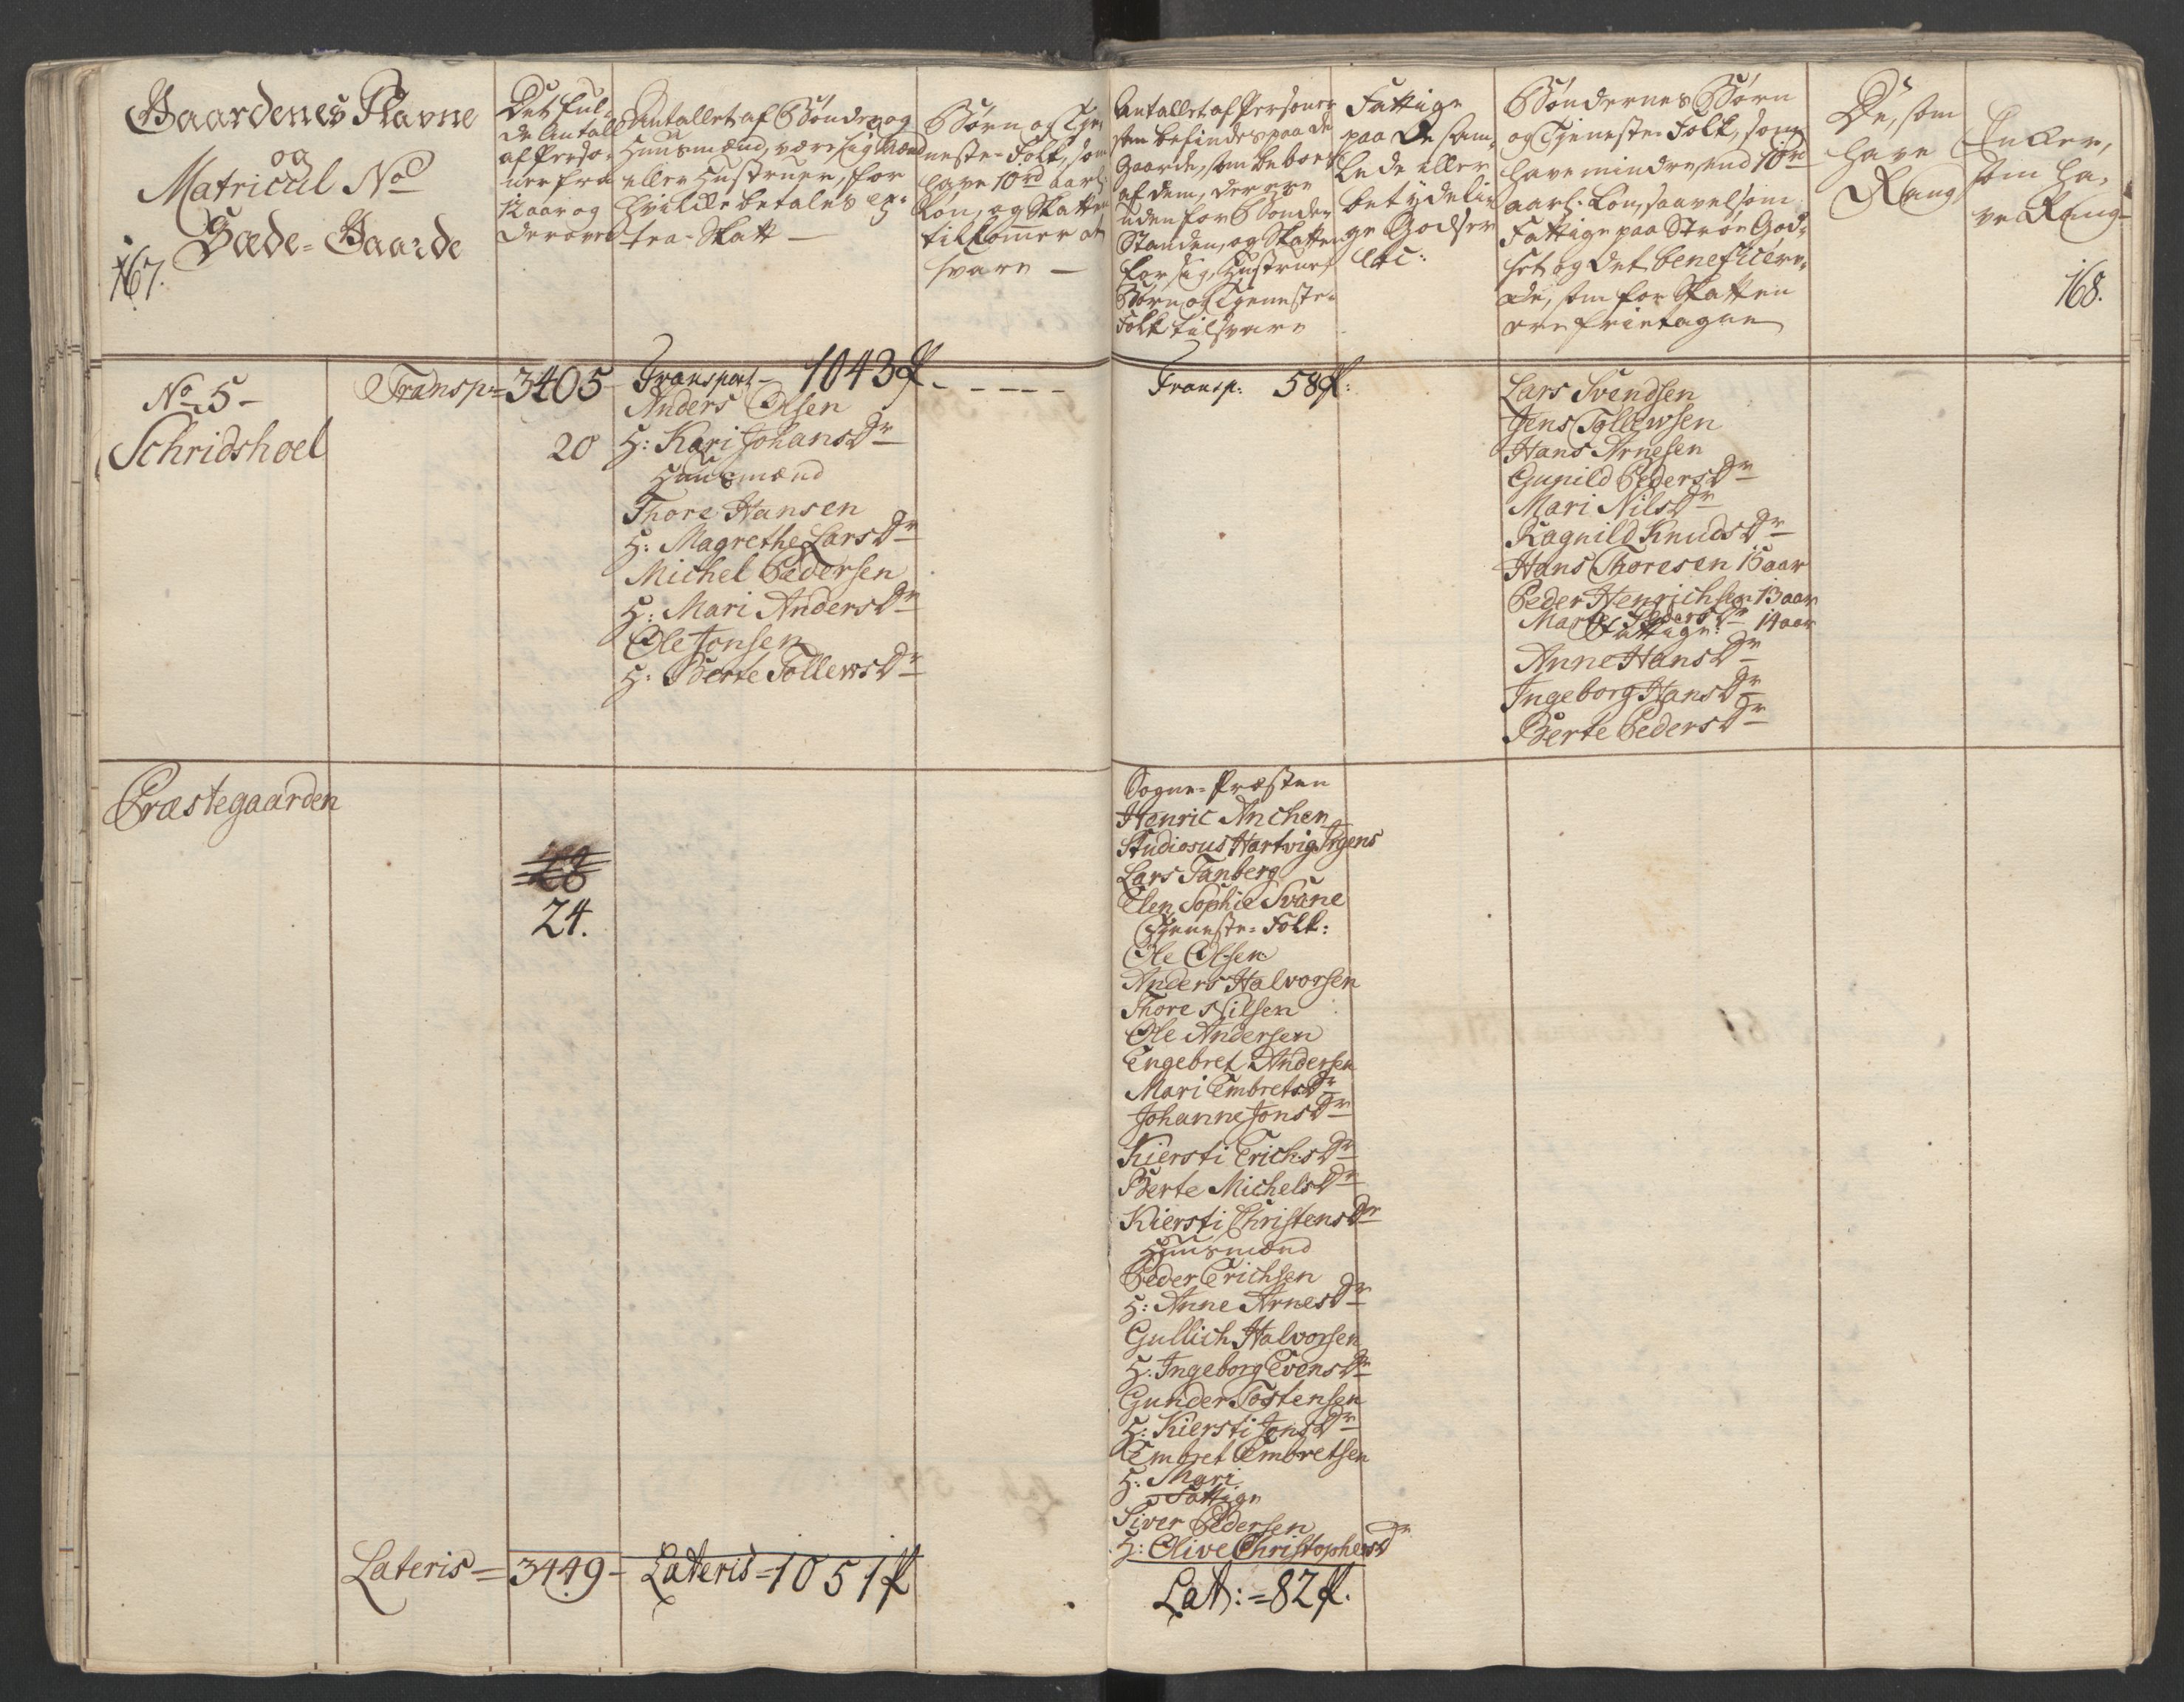 Gaardenes Navne
og
Matricul No
Sæde-Gaarde
167.
Det ful-
de Antall
af Perso-
ner fra
12 aar og
derover
Antallet af Bønder og
Huusmænd, være sig Mænd
eller Hustruer, for
hvilke betales ex-
tra-Skatt
Børn og Tie-
neste-Folk, som
have 10rd aarl:
Løn, og Skatten
tilkommer at
svare
Antallet af Personer
som befindes paa de
Gaarde, som beboes
af dem, der ere
uden for Bonde-
Standen, og Skatten
for sig, Hustruer
Børn og Tieneste-
Folk tilsvare
Fattige
paa de sam-
lede eller
betydeli-
ge Godser
etc:
Bøndernes Børn
og Tieneste-Folk, som
have mindre, end 10rd
aarl: Løn, saavelsom
Fattige paa Strøe God-
set og det beneficere-
ede, som for Skatten
ere frietagne
De, som
have
Rang
Enker,
som ha-
ve Rang
168.
No 5
Schridshoel
Transp= 3405
20
Transport 1043 st
Anders Olsen
H: Kari JohansDr
Huusmænd
Thore Hansen
H: Magrethe LarsDr
Michel Pedersen
H: Mari AndersDr
Ole Jonsen
H: Berte TollewsDr
Transp: 58 st:
Lars Svendsen
Jens Tollewsen
Hans Arnesen
Gunild PedersDr
Mari NilsDr
Ragnild KnudsDr
Hans Thoresen 15 aar
Peder Henrichsen 13 aar
Marte PedersDr 14 aar
Fattige:
Anne HansDr
Ingeborg HansDr
Berte PedersDr
Præstegaarden
24.
Sogne-Præsten
Henric Anchen
Studiosus Hartvig Irgens
Lars Tanberg
Elen Sophie Svane
Tieneste-Folk:
Ole Olsen
Anders Halvorsen
Thore Nilsen
Ole Andersen
Engebret Andersen
Mari EmbretsDr
Johanne JonsDr
Kiersti ErichsDr
Berte MichelsDr
Kiersti ChristensDr
Huusmænd
Peder Erichsen
H: Anne ArnesDr
Gullich Halvorsen
H: Ingeborg EvensDr
Gunder Tostensen
H: Kiersti JonsDr
Embret Embretsen
H: Mari
Fattige
Siver Pedersen
H: Olive ChristophersDr
Lateris = 3449
Lateris = 1051 st
Lat: = 82 st.